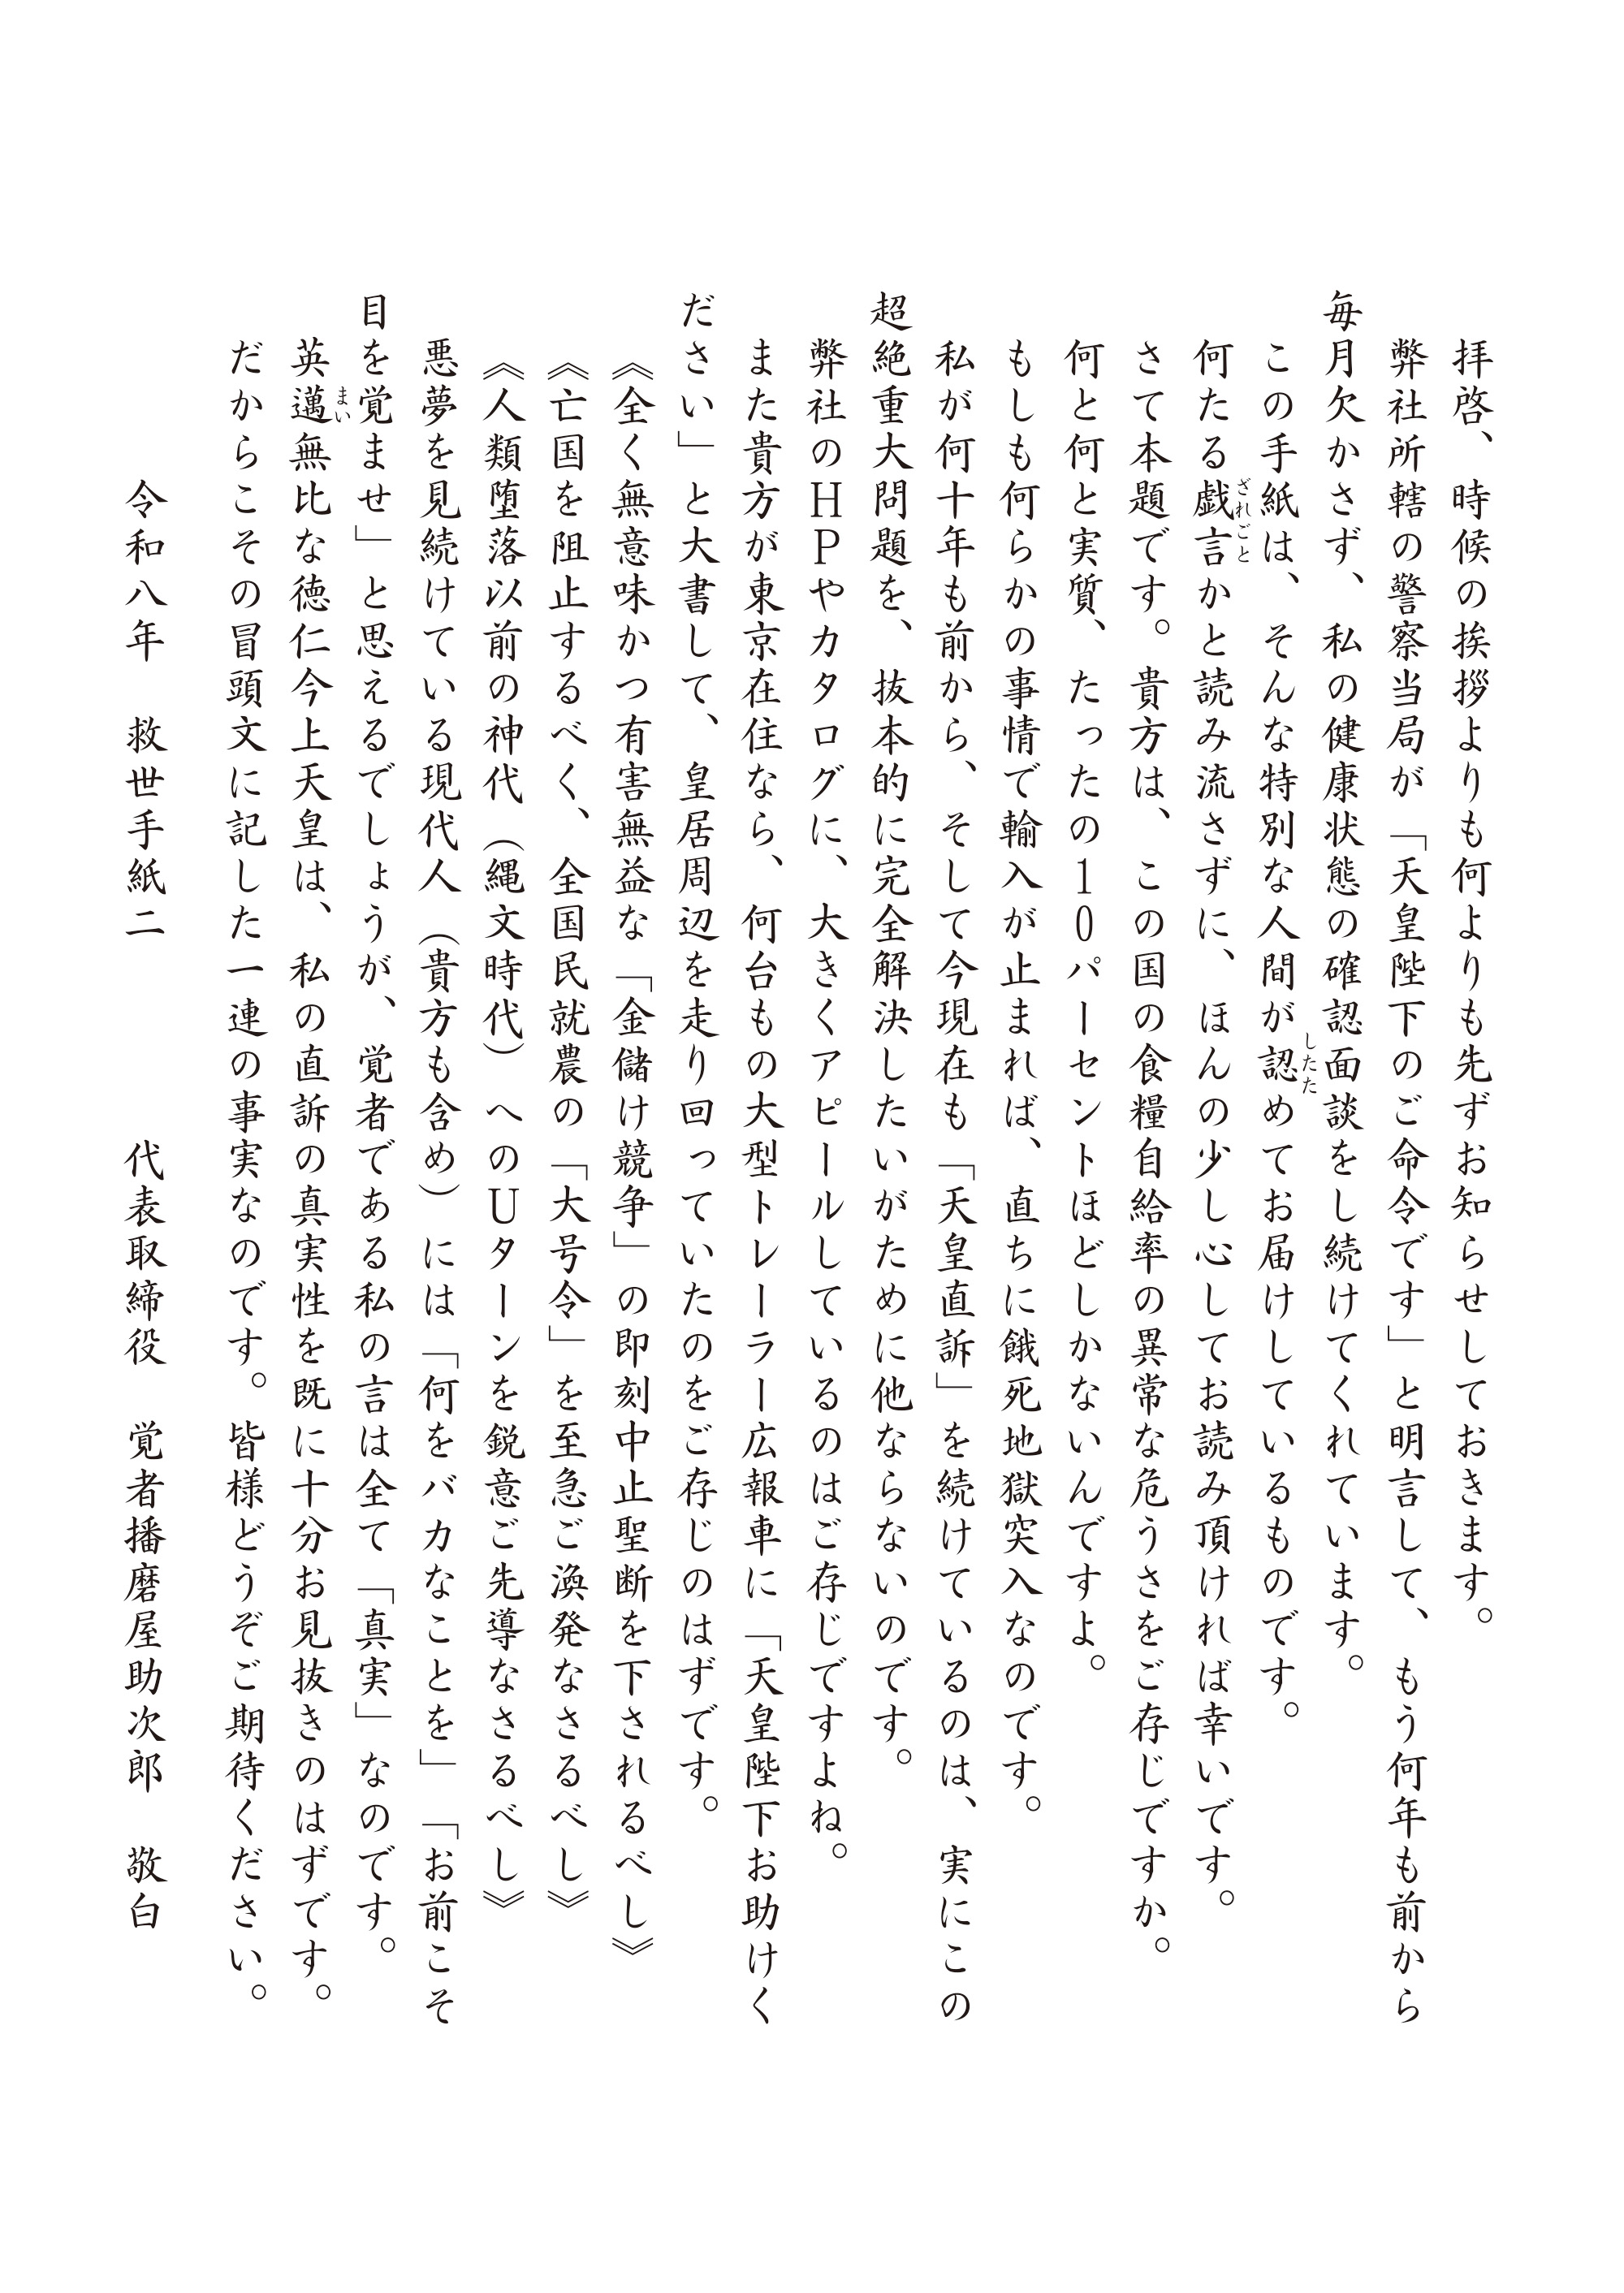 拝啓、時候の挨拶よりも何よりも先ずお知らせしておきます。
弊社所轄の警察当局が「天皇陛下のご命令です」と明言して、もう何年も前から
毎月欠かさず、私の健康状態の確認面談をし続けてくれています。
この手紙は、そんな特別な人間が認めてお届けしているものです。
したた
何たる戯言かと読み流さずに、ほんの少し心してお読み頂ければ幸いです。
ざれごと
さて本題です。貴方は、この国の食糧自給率の異常な危うさをご存じですか。
何と何と実質、たったの10パーセントほどしかないんですよ。
もしも何らかの事情で輸入が止まれば、直ちに餓死地獄突入なのです。
私が何十年も前から、そして今現在も「天皇直訴」を続けているのは、実にこの
超絶重大問題を、抜本的に完全解決したいがために他ならないのです。
弊社のHPやカタログに、大きくアピールしているのはご存じですよね。
また貴方が東京在住なら、何台もの大型トレーラー広報車に「天皇陛下お助けく
ださい」と大書して、皇居周辺を走り回っていたのをご存じのはずです。
《全く無意味かつ有害無益な「金儲け競争」の即刻中止聖断を下されるべし》
《亡国を阻止するべく、全国民就農の「大号令」を至急ご渙発なさるべし》
《人類堕落以前の神代（縄文時代）へのUターンを鋭意ご先導なさるべし》
悪夢を見続けている現代人（貴方も含め）には「何をバカなことを」「お前こそ
目を覚ませ」と思えるでしょうが、覚者である私の言は全て「真実」なのです。
英邁無比な徳仁今上天皇は、私の直訴の真実性を既に十分お見抜きのはずです。
まい
だからこその冒頭文に記した一連の事実なのです。皆様どうぞご期待ください。
令和八年　救世手紙二　　　　代表取締役　覚者播磨屋助次郎　敬白